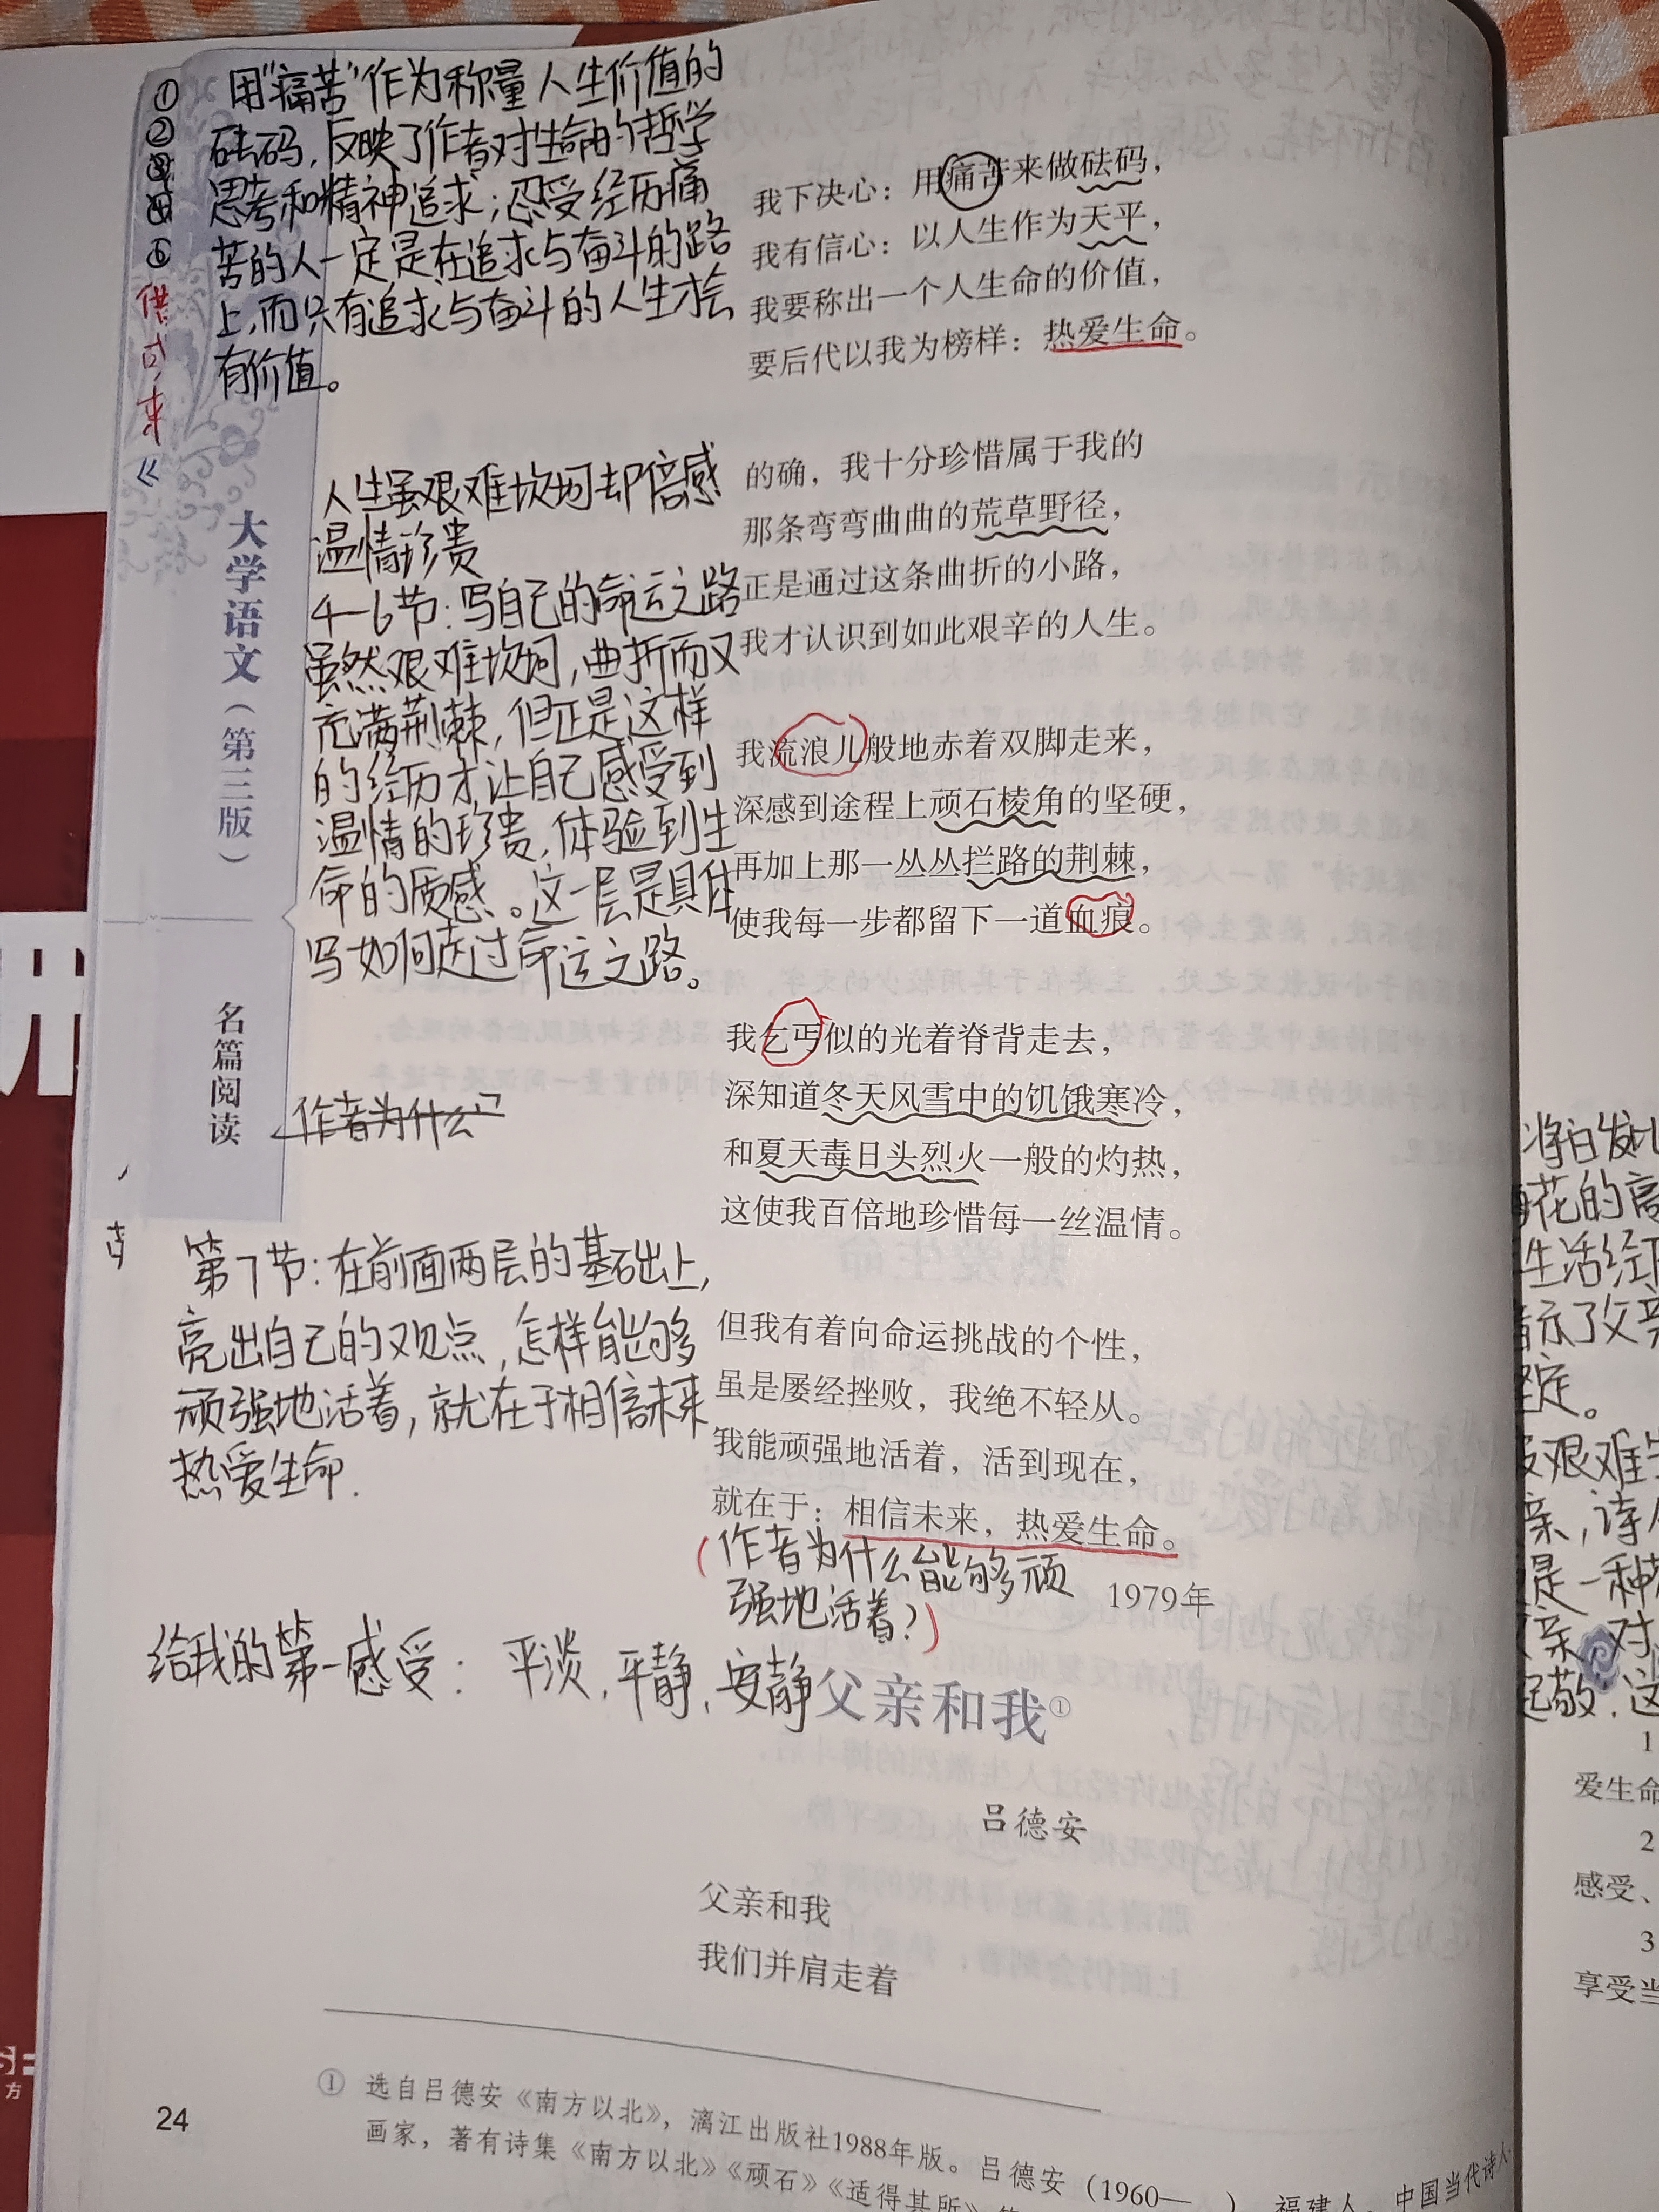 ①
②
⑤
用“痛苦”作为称量人生价值的
砝码,反映了作者对生命的哲学
思考和精神追求;忍受经历痛
苦的人一定是在追求与奋斗的路
上,而只有追求与奋斗的人生才会
有价值。
人生虽艰难坎坷却倍感
温情珍贵
4-6节:写自己的命运之路
虽然艰难坎坷,曲折而又
充满荆棘,但正是这样
的经历才让自己感受到
温情的珍贵,体验到生
命的质感。这一层是具体
写如何走过命运之路。
作者为什么
第7节:在前面两层的基础上,
亮出自己的观点,怎样能够
顽强地活着,就在于相信未来
热爱生命.
大学语文(第三版)
名篇阅读
我下决心:用痛苦来做砝码,
我有信心:以人生作为天平,
我要称出一个人生命的价值,
要后代以我为榜样:热爱生命。
的确,我十分珍惜属于我的
那条弯弯曲曲的荒草野径,
正是通过这条曲折的小路,
我才认识到如此艰辛的人生。
我流浪儿般地赤着双脚走来,
深感到途程上顽石棱角的坚硬,
再加上那一丛丛拦路的荆棘,
使我每一步都留下一道血痕。
我乞丐似的光着脊背走去,
深知道冬天风雪中的饥饿寒冷,
和夏天毒日头烈火一般的灼热,
这使我百倍地珍惜每一丝温情。
但我有着向命运挑战的个性,
虽是屡经挫败,我绝不轻从。
我能顽强地活着,活到现在,
就在于:相信未来,热爱生命。
(作者为什么能够顽
强地活着?)
1979年
给我的第一感受:平淡,平静,安静
父亲和我①
吕德安
父亲和我
我们并肩走着
① 选自吕德安《南方以北》,漓江出版社1988年版。吕德安(1960— ),福建人,中国当代诗人、
画家,著有诗集《南方以北》《顽石》《适得其所》
24
将白发比
花的高
生活经历
示了父亲
定。
艰难
亲,诗人
是一种
亲,对
起敬,这
1
爱生命
2
感受、
3
享受当